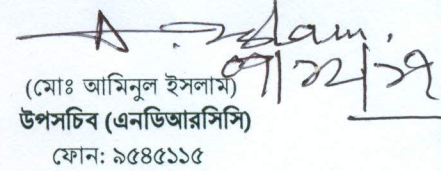 (মোঃ আমিনুল ইসলাম)
উপসচিব (এনডিআরসিসি)
ফোন: ৯৫৪৫১১৫